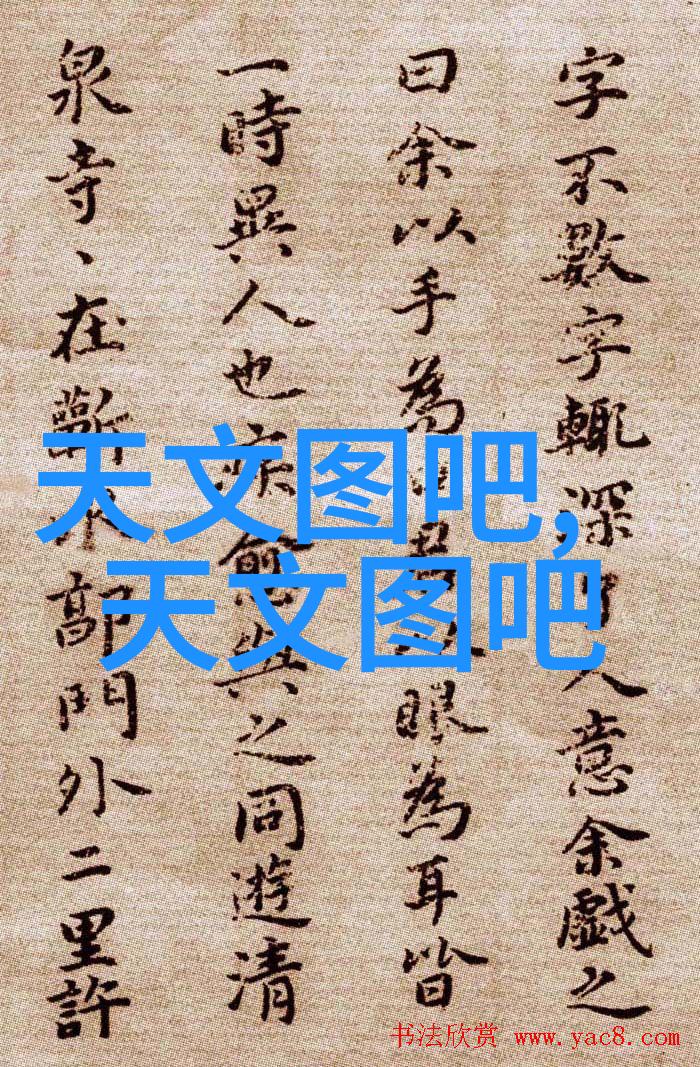 字不數字輒深了人意余戲之
曰余以手為口君以眼為耳皆
一時異人也疾愈與之同遊清
泉寺、在蘄水郭門外二里許
天文图吧,
天文图吧
书法欣赏 www.yac8.com